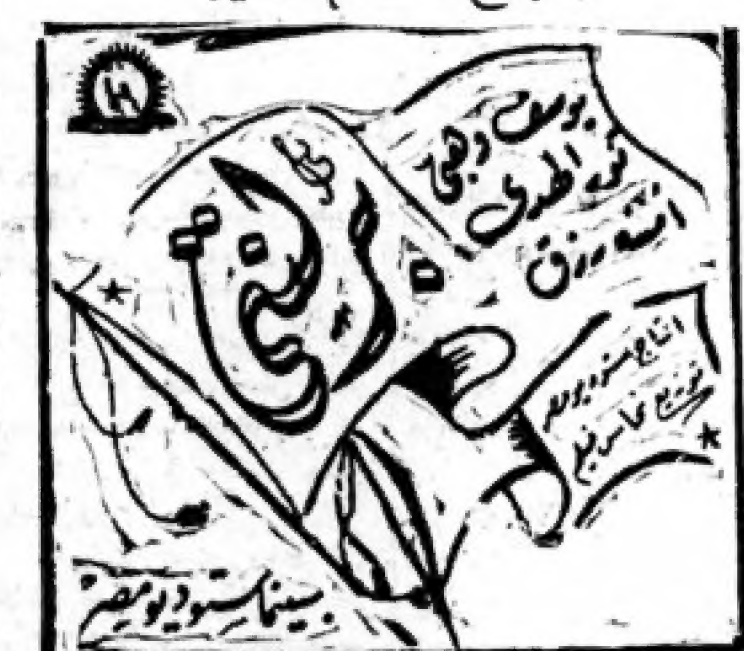 يوسف وهبى
نور الهدى
امينه رزق
برلنتى
انتاج ستوديو مصر
توزيع نحاس فيلم
بسينما ستوديو مصر